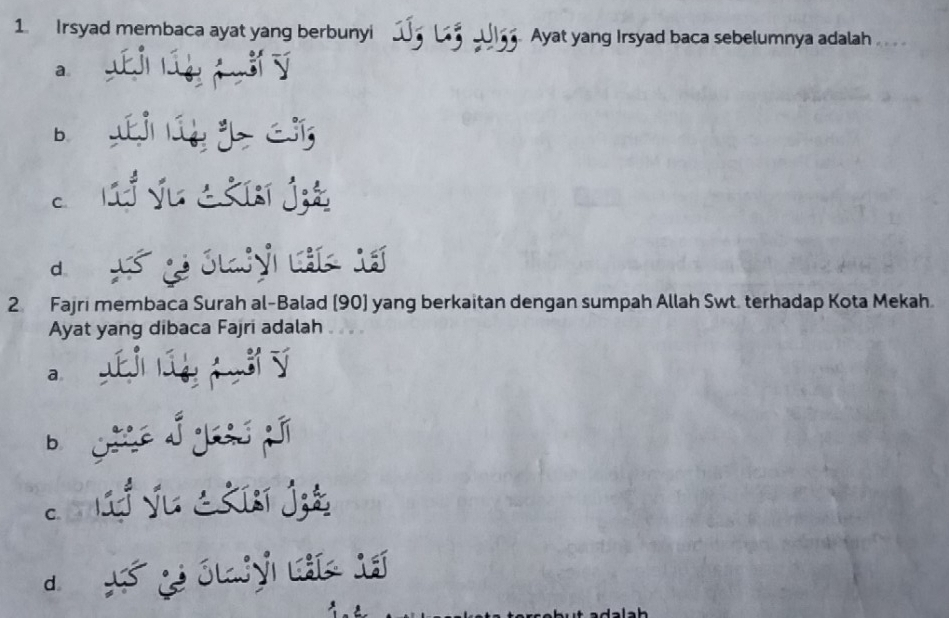 1. Irsyad membaca ayat yang berbunyi وَوَالِدٍ وَّمَا وَلَدَ. Ayat yang Irsyad baca sebelumnya adalah . . . .
a. لَآ اُقْسِمُ بِهٰذَا الْبَلَدِ
b. وَاَنْتَ حِلٌّۢ بِهٰذَا الْبَلَدِ
c. يَقُوْلُ اَهْلَكْتُ مَالًا لُّبَدًا
d. لَقَدْ خَلَقْنَا الْاِنْسَانَ فِيْ كَبَدٍ
2. Fajri membaca Surah al-Balad [90] yang berkaitan dengan sumpah Allah Swt. terhadap Kota Mekah.
Ayat yang dibaca Fajri adalah . . . .
a. لَآ اُقْسِمُ بِهٰذَا الْبَلَدِ
b. اَلَمْ نَجْعَلْ لَّهٗ عَيْنَيْنِ
c. يَقُوْلُ اَهْلَكْتُ مَالًا لُّبَدًا
d. لَقَدْ خَلَقْنَا الْاِنْسَانَ فِيْ كَبَدٍ
tersebut adalah